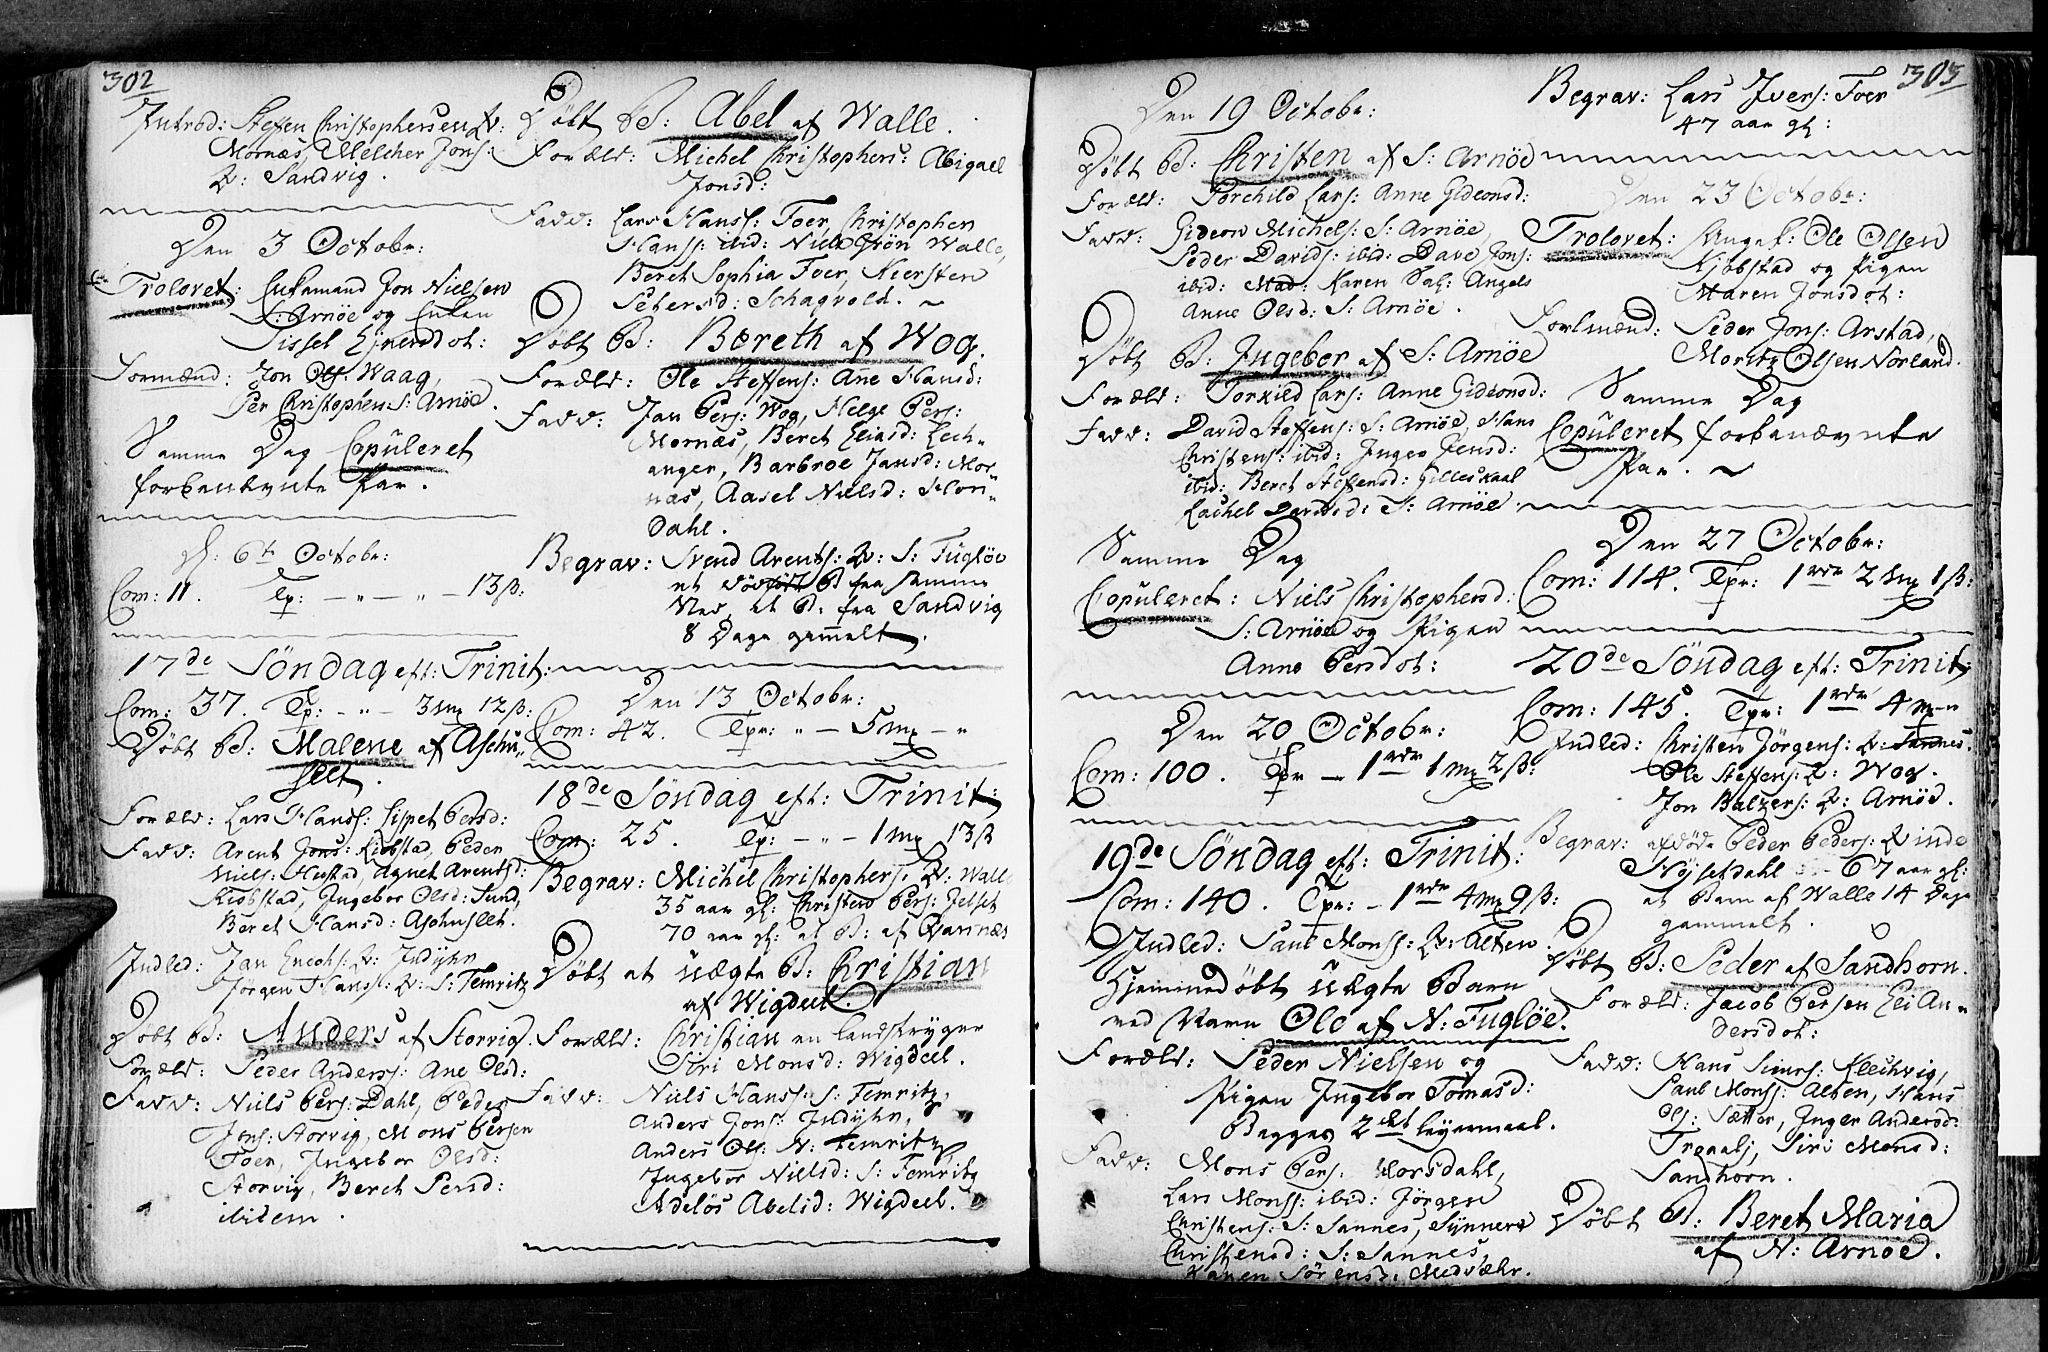 302
Introd: Steffen Christophersen Q:
Mornæs, Melcher Jons:
Q: Sandvig.
Den 3 Octobr:
Trolovet: Enkemand Jon Nielsen
S: Arnøe og Enken
Sissel Ejnersdot:
Formænd: Jon Ols: Waag,
Per Christophens: Arnøe.
Samme Dag Copuleret
forbenævnte Par.
d: 6te Octobr:
Com: 11. Tp: - " - " - 13 ß:
17de Søndag eft: Trinit:
Com: 37. Tp: - " - 3 mz 12 ß:
Døbt B: Malene af Aschu
slet.
Foræld: Lars Hanss: Lispet Persd:
Fadd: Arent Jons: Kiobstad, Peder
Niels: Hustad, Agnet Arentsd:
Kiobstad, Ingebor Olsd: Sund,
Beret Hansd: Aschuslet.
Indled: Jan Enochs: Q: Indyhr
Jørgen Hanss: Q: S: Femritz
Døbt B: Anders af Storvig.
Foræld: Peder Anderss: Ane Olsd:
Fadd: Niels Pers: Dahl, Peder
Jons: Storvig, Mons Persen
Foer, Ingebor Olsd:
Storvig, Beret Persd:
ibidem.
Døbt B: Abel af Walle.
Foræld: Michel Christophers: Abigael
Jonsd:
Fadd: Lars Hanss: Foer, Christophen
Hanss: ibid: Niels Grön Walle,
Beret Sophia Foer, Kiersten
Petersd: Schagvold. ~
Døbt B: Bereth af Wog.
Foræld: Ole Steffens: Añe Hansd:
Fadd: Jan Pers: Wog, Helge Pers:
Mornæs, Beret Eliasd: Lech-
anger, Barbroe Jansd: Mor
næs, Aasel Nielsd: Hori-
Dahl.
Begrav: Svend Arents: Q: S: Fugløe
et dødfødt B fra samme
Sted, et B: fra Sandvig
8 Dage gam̅elt.
Den 13 Octobr:
Com: 42. Tpr: " - 5 mz - "
18de Søndag eft: Trinit:
Com: 25. Tp: - " - 1 mz 13 ß
Begrav: Michel Christophers: Q: Walle
35 aar gl: Christen Pers: Jelset
70 aar gl: et B: af Qvarnæs
Døbt et uægte B: Christian
af Wigdeel.
Foræld: Christian en Landstryger
Siri Monsd: Wigdeel.
Fadd: Niels Hanss: S: Femritz,
Anders Jons: Indyhr,
Anders Ols: N: Femritz,
Ingebor Nielsd: S: Femritz
Adelós Abelsd: Wigdeel.
303
Den 19 Octobr:
Døbt B: Christen af S: Arnöe
Foræld: Torchild Lars: Anne Gideonsd:
Fadd: Gideon Michels: S: Arnöe,
Peder Davids: ibid: Dave Jons:
ibid: Mad: Karen Sal: Angels
Anne Olsd: S: Arnöe.
Døbt B: Ingebor af S: Arnöe
Foræld: Torkild Lars: Anne Gideonsd:
Fadd: David Steffens: S: Arnöe, Hans
Christens: ibid: Inger Jensd:
ibid: Beret Steffensd: Gilleskaal
Rachel Davidsd: S: Arnöe.
Samme Dag
Copuleret: Niels Christophersd:
S: Arnöe og Pigen
Anne Persdot:
Den 20 Octobr:
Com: 100. Tpr - 1 rdr 1 mz 2 ß:
19de Søndag eft: Trinit:
Com: 140. Tpr: - 1 rdr 4 mz 9 ß:
Indled: Paul Monss: Q: Alten.
Hjemmedøbt uægte Barn
ved Navn Ole af N: Fugløe.
Foræld: Peder Nielsen og
Pigen Ingebor Tomasd:
Begges 2det Leyermaal.
Fadd: Mons Pers: Horsdahl,
Lars Monss: ibid: Jörgen
Christens: S: Sannes, Synnere
Christensd: S: Sannes,
Karen Sörensd: Medvæhr.
Begrav: Lars Ivers: Foer
47 aar gl:
Den 23 Octobr:
Trolovet: Ole Olsen
Kjöbstad og Pigen
Maren Jonsdot:
Forlmænd: Peder Jons: Arstad,
Moritz Olsen Norland.
Samme Dag
Copuleret forbenævnte
Par. ~
Den 27 Octobr:
Com: 114. Tpr: 1 rdr 2 mz 1 ß:
20de Søndag eft: Trinit:
Com: 145. Tpr: 1 rdr 4 mz - "
Indled: Christen Jörgens: Q: Sannes.
Ole Steffens: Q: Wog.
Jon Balzers: Q: Arnöe.
Begrav: afdöde Peder Peders: Qvinde
Nÿsetdahl 67 aar gl:
et Barn af Walle 14 Dage
gammelt.
Døbt B: Peder af Sandhorn.
Foræld: Jacob Persen Eli An-
dersdot:
Fadd: Hans Simes: Klechvig,
Paul Monss: Alten, Hans
Ols: Sætter, Inger Andersd:
Treaalj, Siri Monsd:
Sandhorn.
Døbt B: Beret Maria
af N: Arnöe.